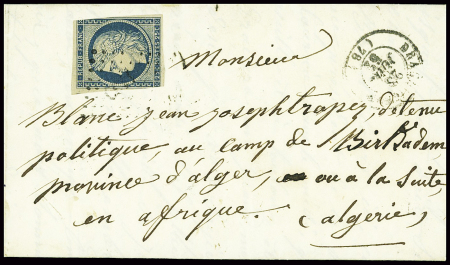 REPUB. FRANC.
Monsieur
Blanc jean joseph trapez, détenu
politique, au camp de Birkadem
province d'alger, ou à la suite,
en afrique. (algerie)